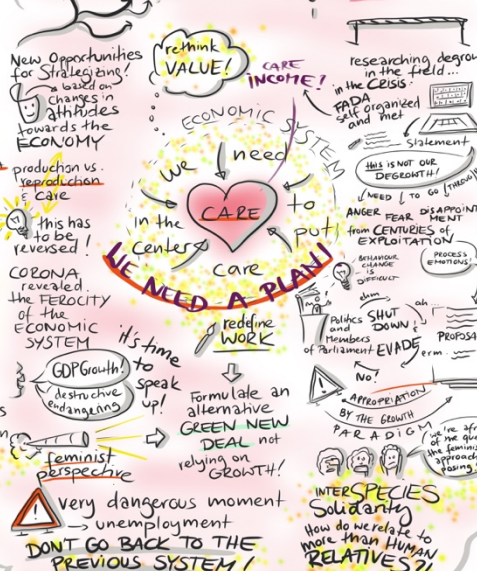 New Opportunities
for Strategizing!
based on
changes in
attitudes
towards the
ECONOMY
production vs.
reproduction
& care
this has
to be
reversed!
CORONA
revealed
the FEROCITY
of the
ECONOMIC
SYSTEM
GDPGrowth!
destructive
endangering
it's time
to
speak
up!
feminist
perspective
very dangerous moment
→ unemployment
DON'T GO BACK TO THE
PREVIOUS SYSTEM!
rethink
VALUE!
CARE
INCOME?
ECONOMIC SYSTEM
we need
to
put
care
in the
center
CARE
WE NEED A PLAN!
redefine
WORK
Formulate an
alternative
GREEN NEW
DEAL not
relying on
GROWTH!
researching degrow
in the field...
in the CRISIS:
FADA
self organized
and met
Statement
this is NOT OUR
DEGROWTH!
NEED TO GO THROUGH
ANGER FEAR DISAPPOINT
MENT
from CENTURIES of
EXPLOITATION
BEHAVIOUR
CHANGE
IS
DIFFICULT
PROCESS
EMOTIONS!
ehm
ah...
Politics
and
Members
of Parliament
SHUT
DOWN
EVADE
PROPOSA
erm...
NO!
APPROPRIATION
BY THE GROWTH
PARADIGM
we're afr
the feminis
approach
INTERSPECIES
Solidarity
How do we relate to
more than HUMAN
RELATIVES?!